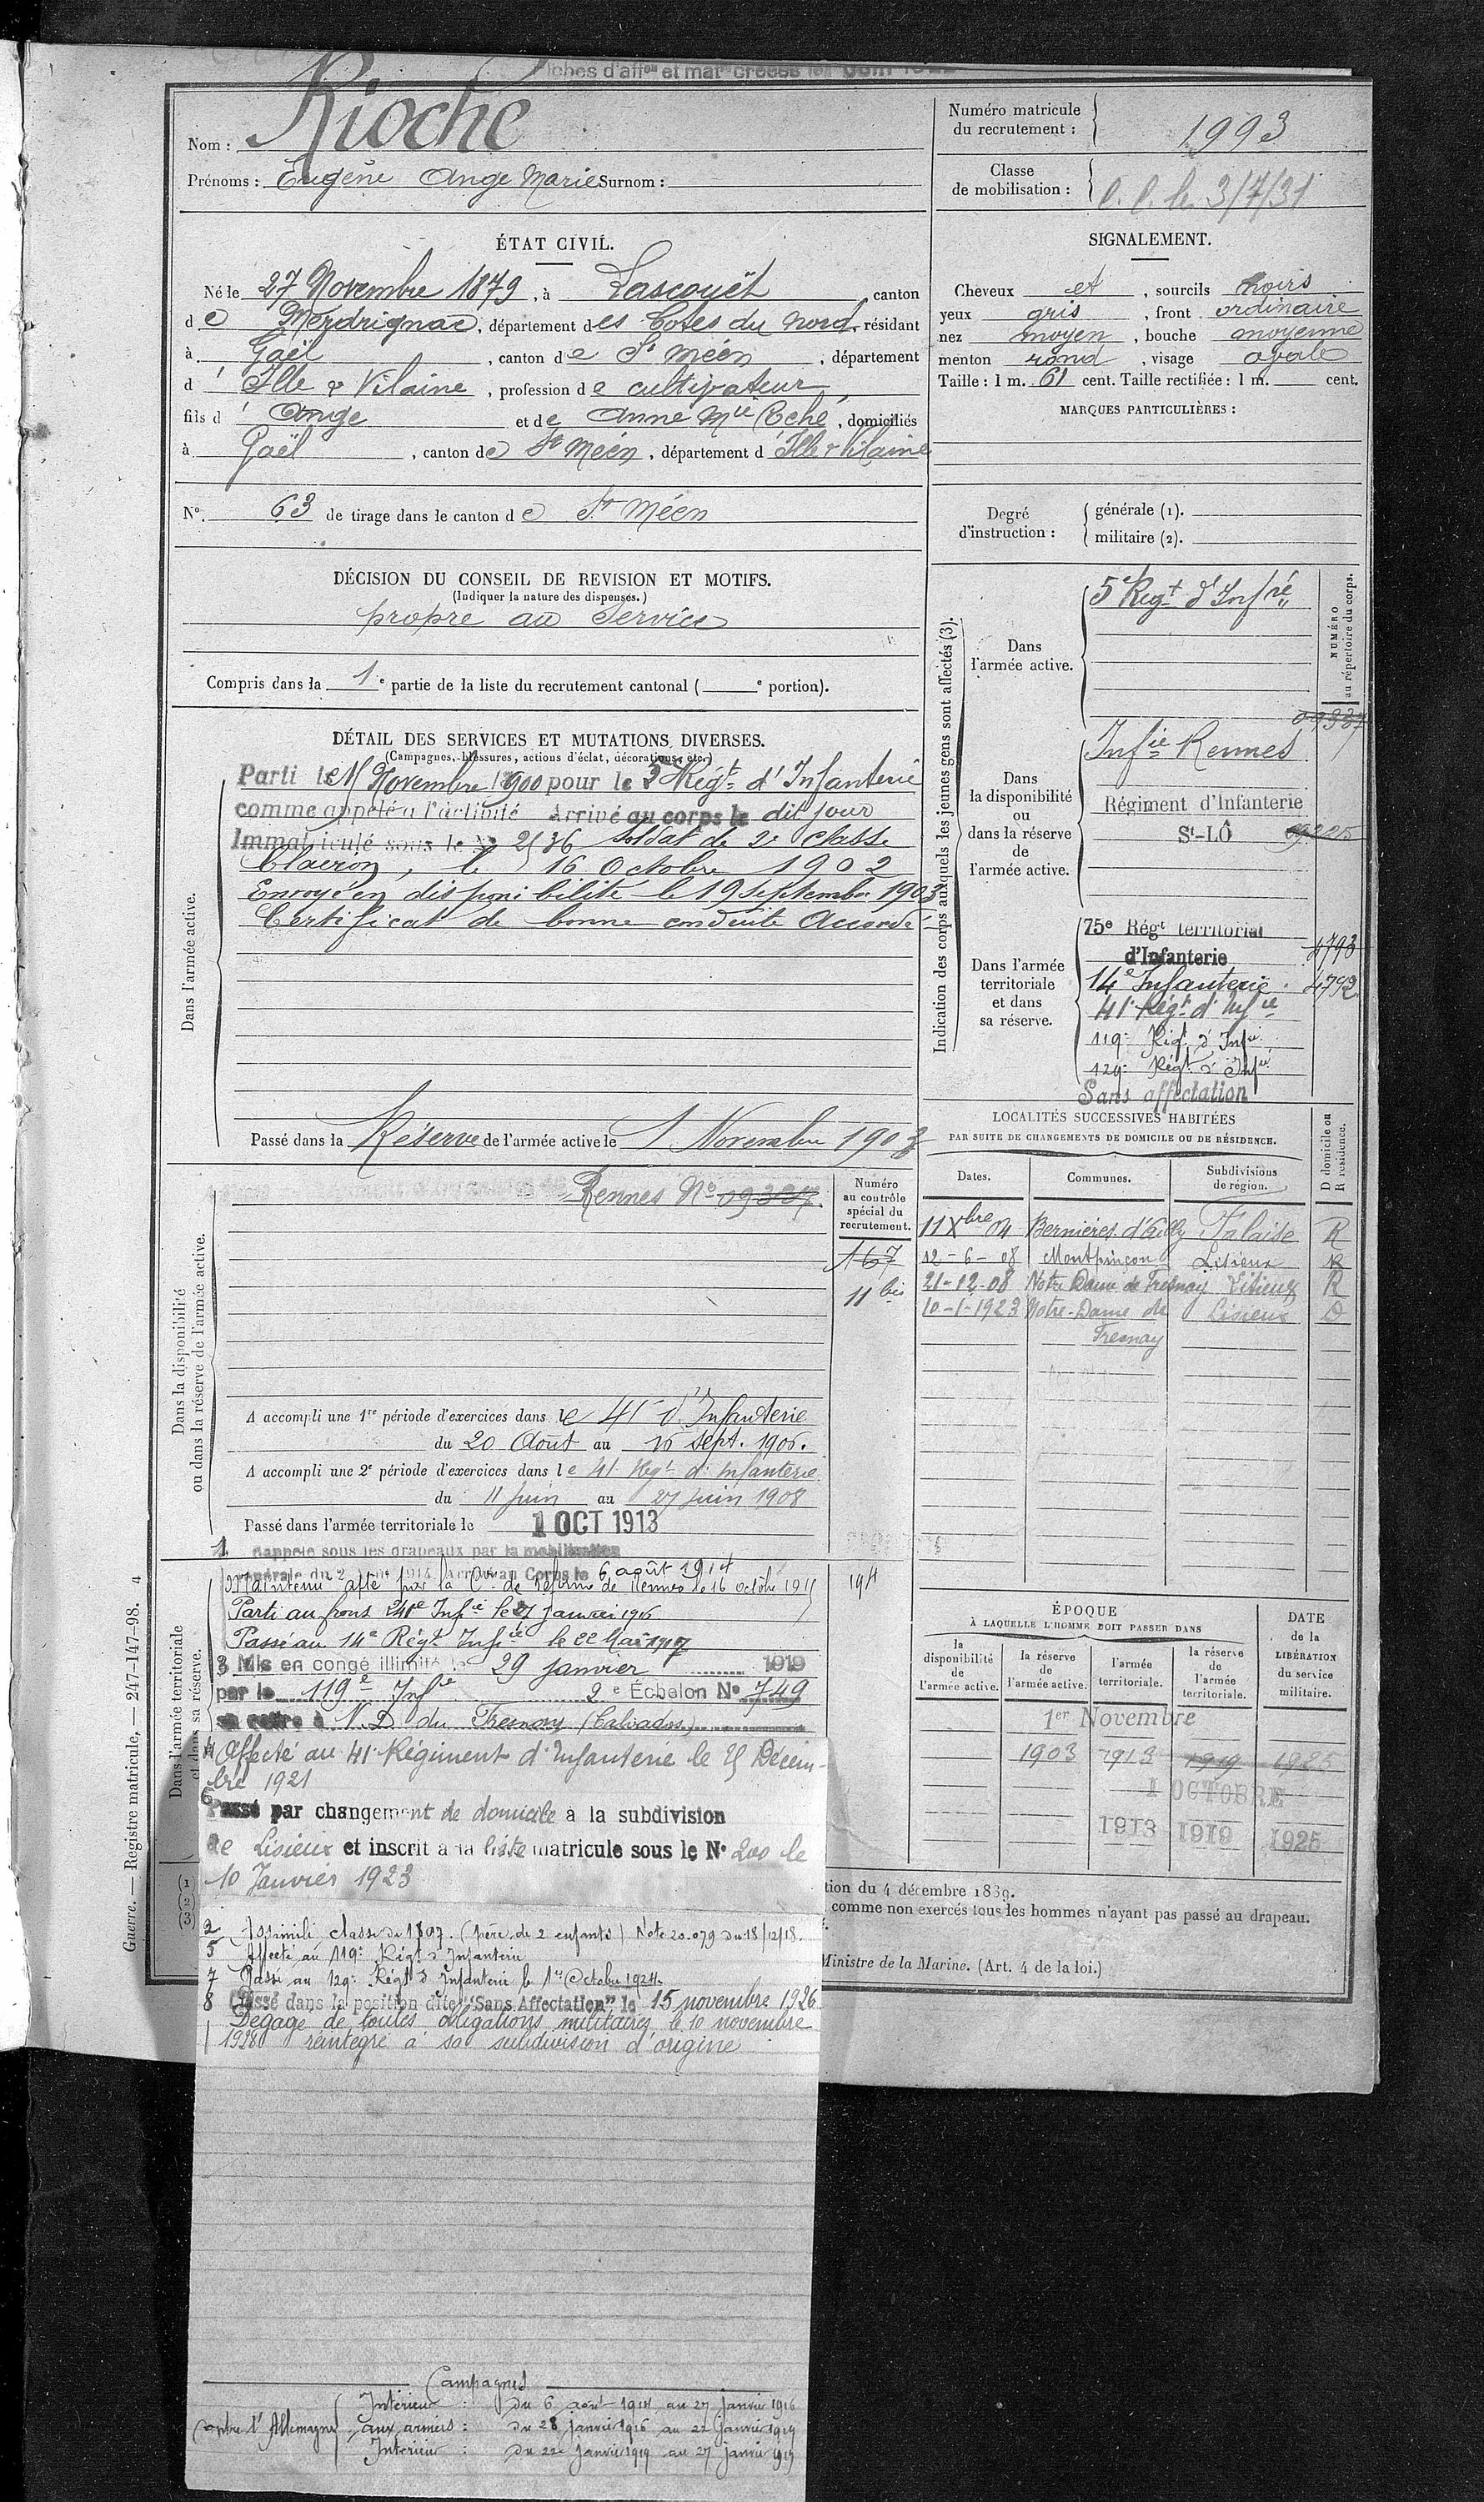 Fiches d'aff^on et mat^le créées
Nom : Rioche
Prénoms : Eugène Ange Marie Surnom :
Numéro matricule
du recrutement : 1993
Classe
de mobilisation : 3/7/31
ÉTAT CIVIL.
Né le 27 Novembre 1879, à Lascouët, canton
de Merdrignac, département des Cotes du Nord, résidant
à Gaël, canton de St Méen, département
d'Ille & Vilaine, profession de cultivateur
fils d'Ange et de Anne Mie Coché, domiciliés
à Gaël, canton de St Méen, département d Ille & Vilaine
N°. 63 de tirage dans le canton de St Méen
SIGNALEMENT.
Cheveux et, sourcils noirs
yeux gris, front ordinaire
nez moyen, bouche moyenne
menton rond, visage ovale
Taille : 1 m. 61 cent. Taille rectifiée : 1 m. cent.
MARQUES PARTICULIÈRES :
Degré
d'instruction :
générale (1).
militaire (2).
DÉCISION DU CONSEIL DE REVISION ET MOTIFS.
(Indiquer la nature des dispenses.)
propre au service
Compris dans la 1e partie de la liste du recrutement cantonal ( e portion).
DÉTAIL DES SERVICES ET MUTATIONS DIVERSES.
(Campagnes, blessures, actions d'éclat, décorations, etc.)
Dans l'armée active.
Parti le Novembre 1900 pour le 5e Régt d'Infanterie
comme appelé à l'activité Arrivé au corps le dit jour
Immatriculé sous le No 2536 soldat de 2e classe
Clairon, le 16 Octobre 1902
Envoyé en disponibilité le 19 septembre 1903
Certificat de bonne conduite Accordé
Passé dans la Réserve de l'armée active le 1 Novembre 1903
Indication des corps auxquels les jeunes gens sont affectés (3).
NUMÉRO
au répertoire du corps.
Dans
l'armée active.
5e Regt d'Infrie
Dans
la disponibilité
ou
dans la réserve
de
l'armée active.
Infie Rennes
09337
Régiment d'Infanterie
St-LÔ
Dans l'armée
territoriale
et dans
sa réserve.
75e Régt territorial
d'Infanterie 4793
14e Infanterie 4792
41e Régt d'Infie
119e Régt d'Infie
129e Régt d'Infie
Sans affectation
LOCALITÉS SUCCESSIVES HABITÉES
PAR SUITE DE CHANGEMENTS DE DOMICILE OU DE RÉSIDENCE.
D domicile ou
R résidence.
Dates. Communes. Subdivisions
de région.
11 Xbre 04 Bernières d'Ailly Falaise R
12-6-08 Montpinçon Lisieux R
21-12-08 Notre Dame de Fresnay Lisieux R
10-1-1923 Notre-Dame de Lisieux D
Fresnay
Dans la disponibilité
ou dans la réserve de l'armée active.
Rennes No 09337
Numéro
au contrôle
spécial du
recrutement.
167
11 bis
A accompli une 1re période d'exercices dans le 41e d'Infanterie
du 20 Août au 16 sept. 1906.
A accompli une 2e période d'exercices dans le 41e Régt d'Infanterie
du 11 juin au 27 juin 1908
Passé dans l'armée territoriale le 1 OCT 1913
Dans l'armée territoriale
et dans sa réserve.
1 Rappelé sous les drapeaux par la mobilisation
générale du 2 août 1914 Arrivé au Corps le 6 août 1914
Maintenu par la Con de réforme de Rennes le 16 octobre
194
Parti au front 241e Infie le 27 janvier 1916
Passé au 14e Régt Infie le 22 Mai 1917
3 Mis en congé illimité le 29 janvier 1919
par le 119e Infie 2e Échelon No 749
se retire à N.D. du Fresnay (Calvados)
4 Affecté au 41e Régiment d'Infanterie le Décem-
bre 1921
6 Passé par changement de domicile à la subdivision
de Lisieux et inscrit à la liste matricule sous le No 200 le
10 Janvier 1923
2 Assimilé classe de 1897. (père de 2 enfants) Note 20.079 du 18/12/18.
5 Affecté au 119e Régt d'Infanterie
7 Passé au 129e Régt d'Infanterie le 1er Octobre 1924.
8 Classé dans la position dite "Sans Affectation" le 15 novembre 1926
Dégagé de toutes obligations militaires le 10 novembre
1928 réintégré à sa subdivision d'origine
ÉPOQUE
À LAQUELLE L'HOMME DOIT PASSER DANS
DATE
de la
LIBÉRATION
du service
militaire.
la
disponibilité
de
l'armée active.
la réserve
de
l'armée active.
l'armée
territoriale.
la réserve
de
l'armée
territoriale.
1er Novembre
1903 1913 1919 1925
1 OCTOBRE
1913 1919 1925
(1)
(2)
(3)
tion du 4 décembre 1889.
comme non exercés tous les hommes n'ayant pas passé au drapeau.
Ministre de la Marine. (Art. 4 de la loi.)
Guerre. — Registre matricule, — 247-147-98. 4
Campagnes
contre l'Allemagne
Intérieur : du 6 août 1914 au 27 janvier 1916
aux armées : du 28 janvier 1916 au 22 janvier 1919
Intérieur : du 22 janvier 1919 au 27 janvier 1919